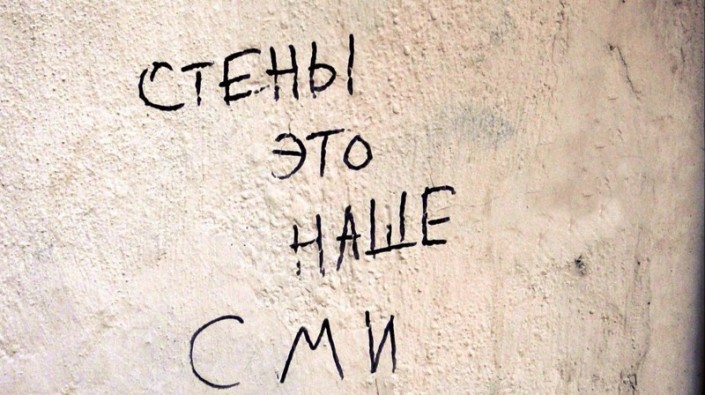 СТЕНЫ
ЭТО
НАШЕ
СМИ